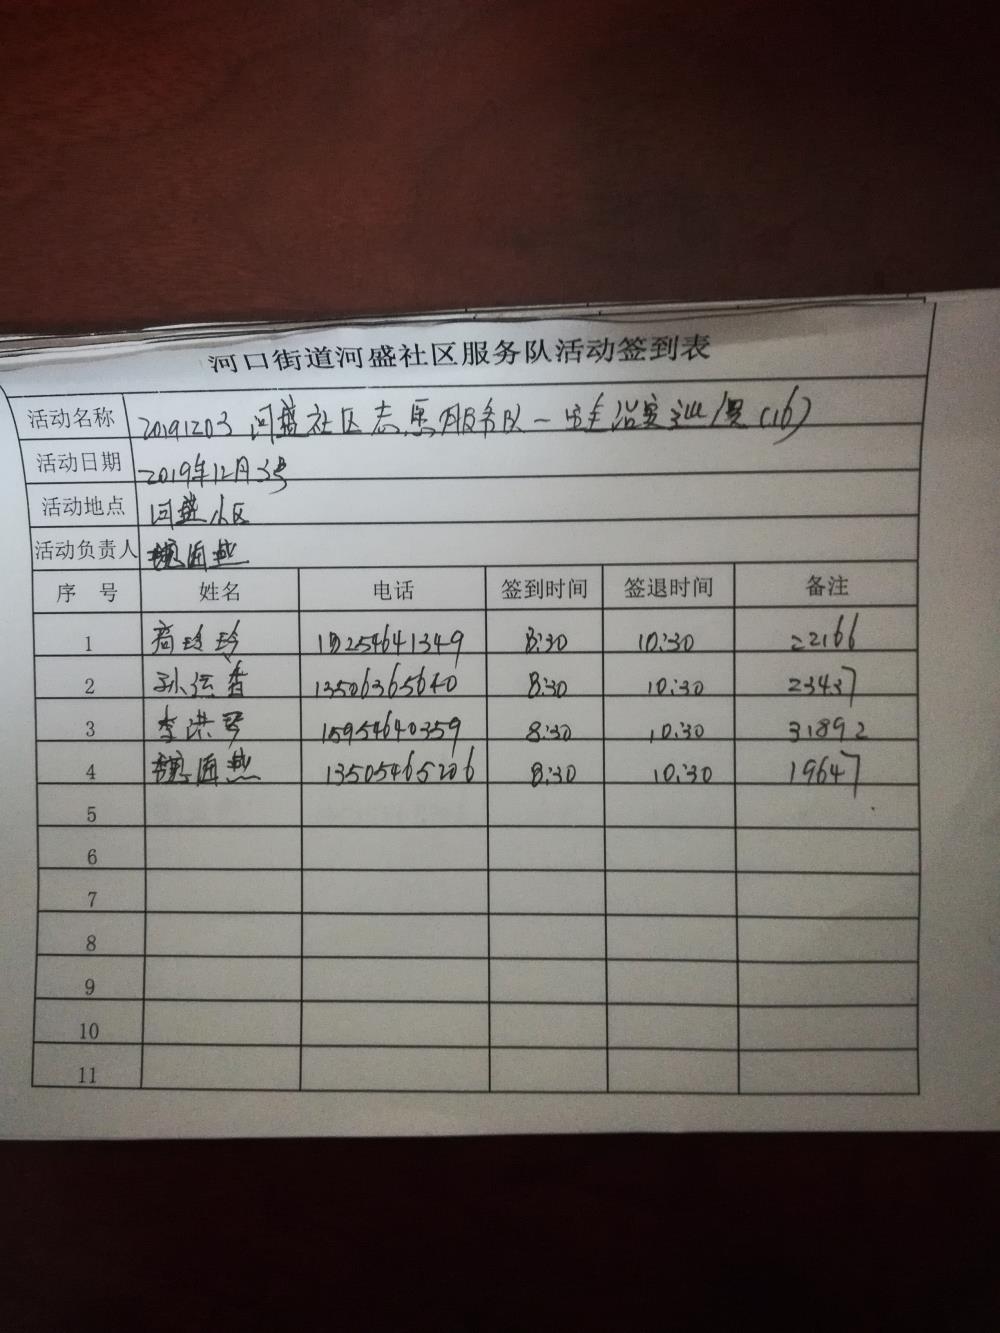 河口街道河盛社区服务队活动签到表
活动名称 20191203 河盛社区志愿服务队一 (16)
活动日期 2019年12月3号
活动地点 河盛小区
活动负责人 魏海燕
序 号 姓名 电话 签到时间 签退时间 备注
1 商玲玲 254641349 8:30 10:30 22166
2 孙 香 13506365640 8:30 10:30 23437
3 李洪 15954640359 8:30 10:30 31892
4 魏海燕 13505465206 8:30 10:30 19647
5
6
7
8
9
10
11